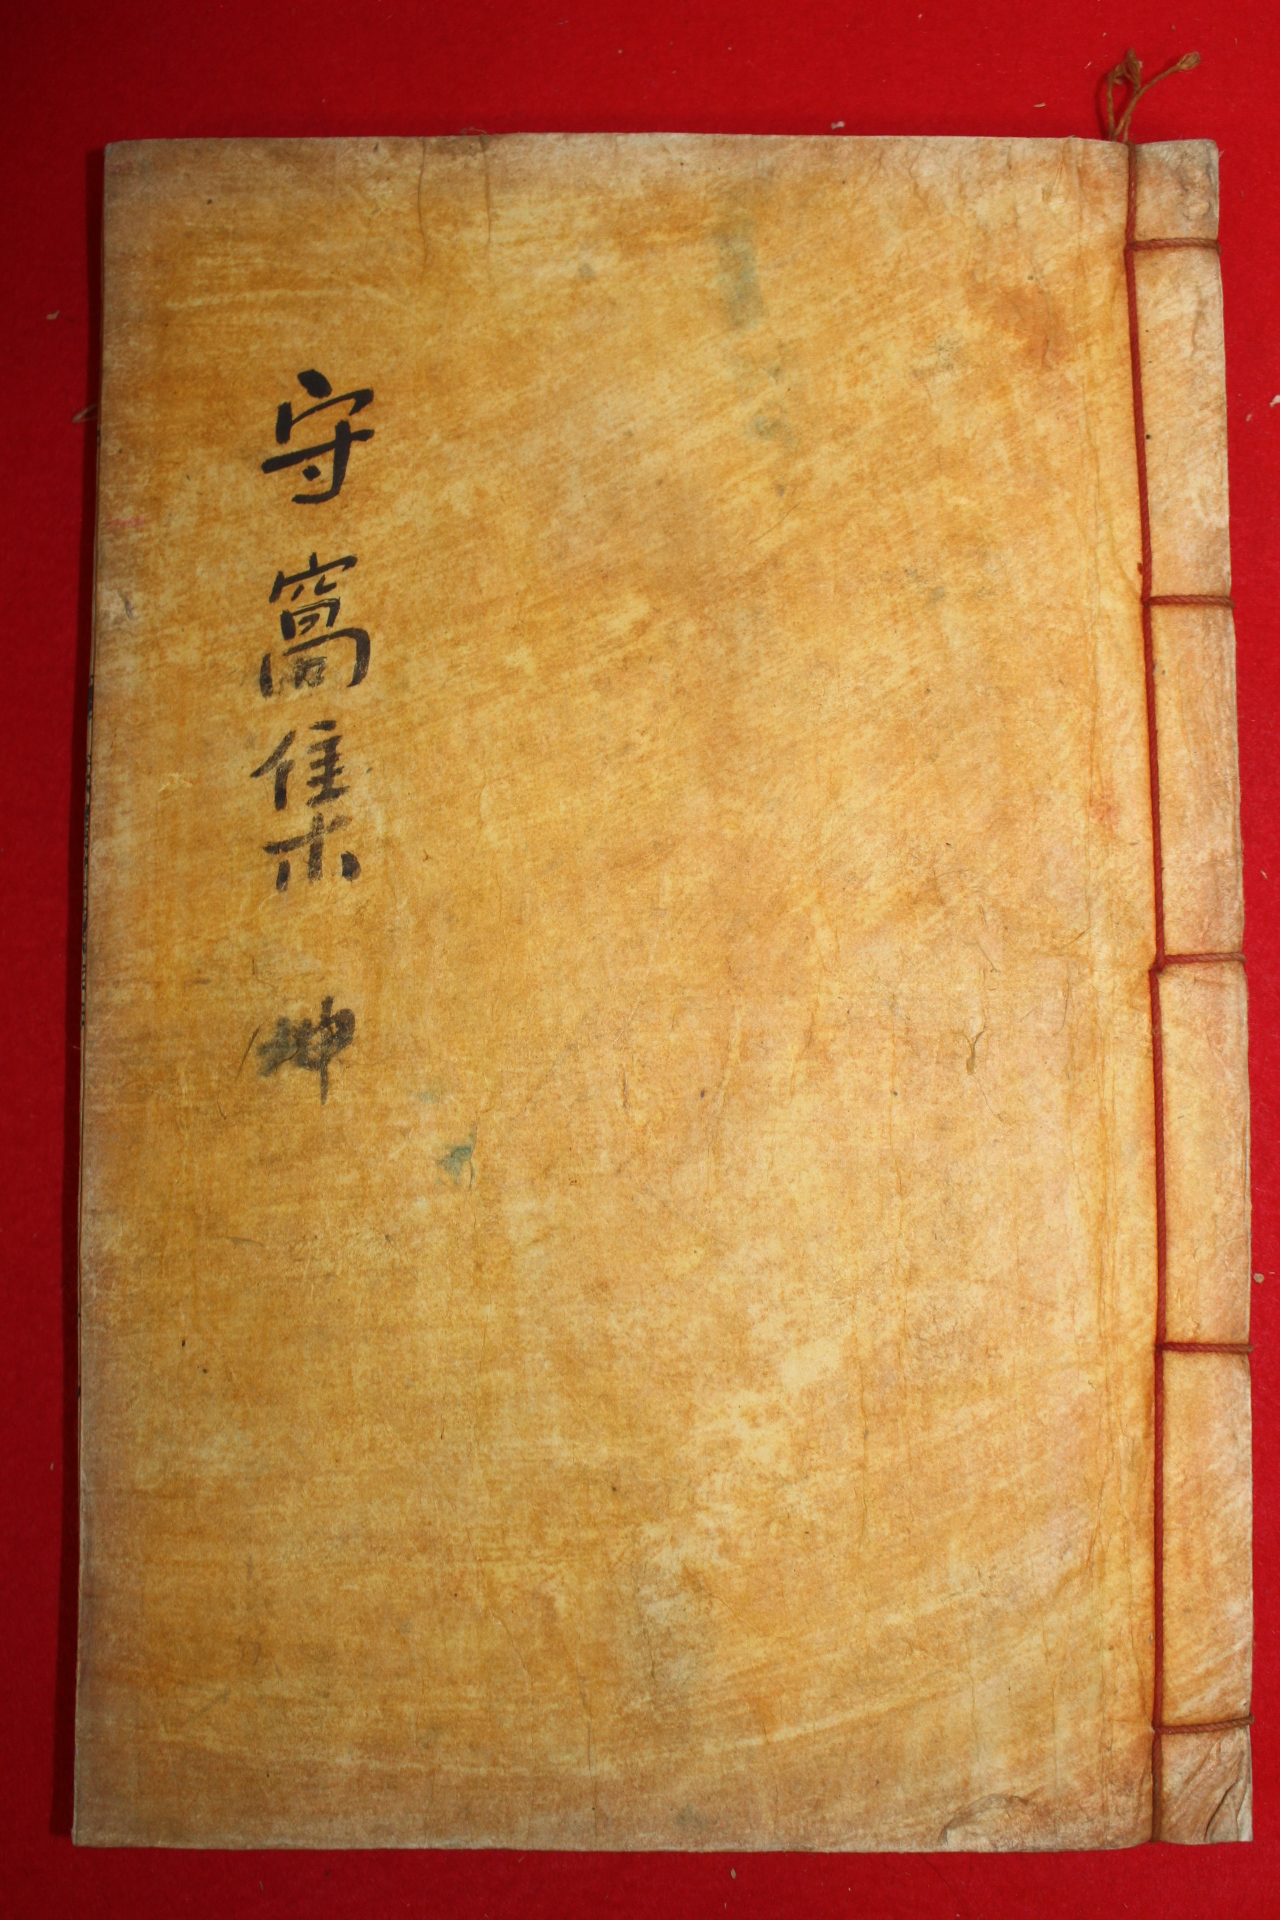 守窩集 坤